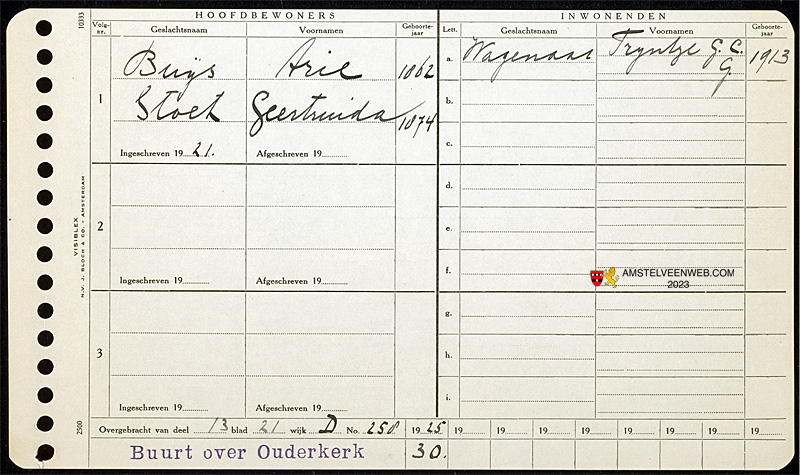 HOOFDBEWONERS
INWONENDEN
10333
Volg-nr.
Geslachtsnaam
Voornamen
Geboorte-jaar
Lett.
Geslachtsnaam
Voornamen
Geboorte-jaar
1
Buijs Arie 1862
Stoet Geertruida 1874
Ingeschreven 19 21.
Afgeschreven 19
a. Wagenaar Tryntje G. C. G. 1913
b.
c.
2
Ingeschreven 19
Afgeschreven 19
d.
e.
f.
AMSTELVEENWEB.COM
2023
3
Ingeschreven 19
Afgeschreven 19
g.
h.
i.
VISIBLEX
N.V. J. BLOCH & CO. - AMSTERDAM
2500
Overgebracht van deel 13 blad 21 wijk D No. 258 19 25 19 19 19 19 19 19 19 19
Buurt over Ouderkerk 30.